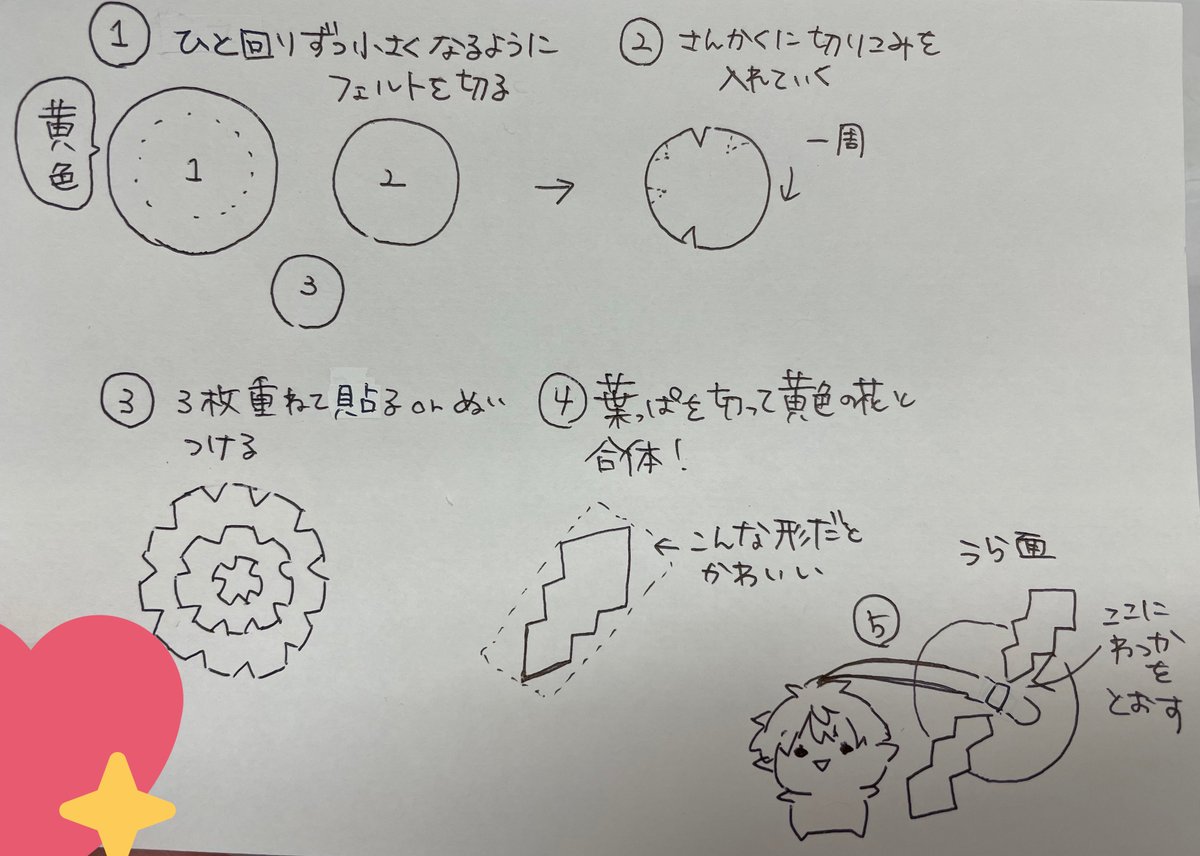 ① ひと回りずつ小さくなるように
フェルトを切る
黄色
1
2
3
② さんかくに切りこみを
入れていく
一周
③ 3枚重ねて貼る or ぬい
つける
④ 葉っぱを切って黄色の花と
合体!
こんな形だと
かわいい
⑤
うら面
ここに
わっか
を
とおす